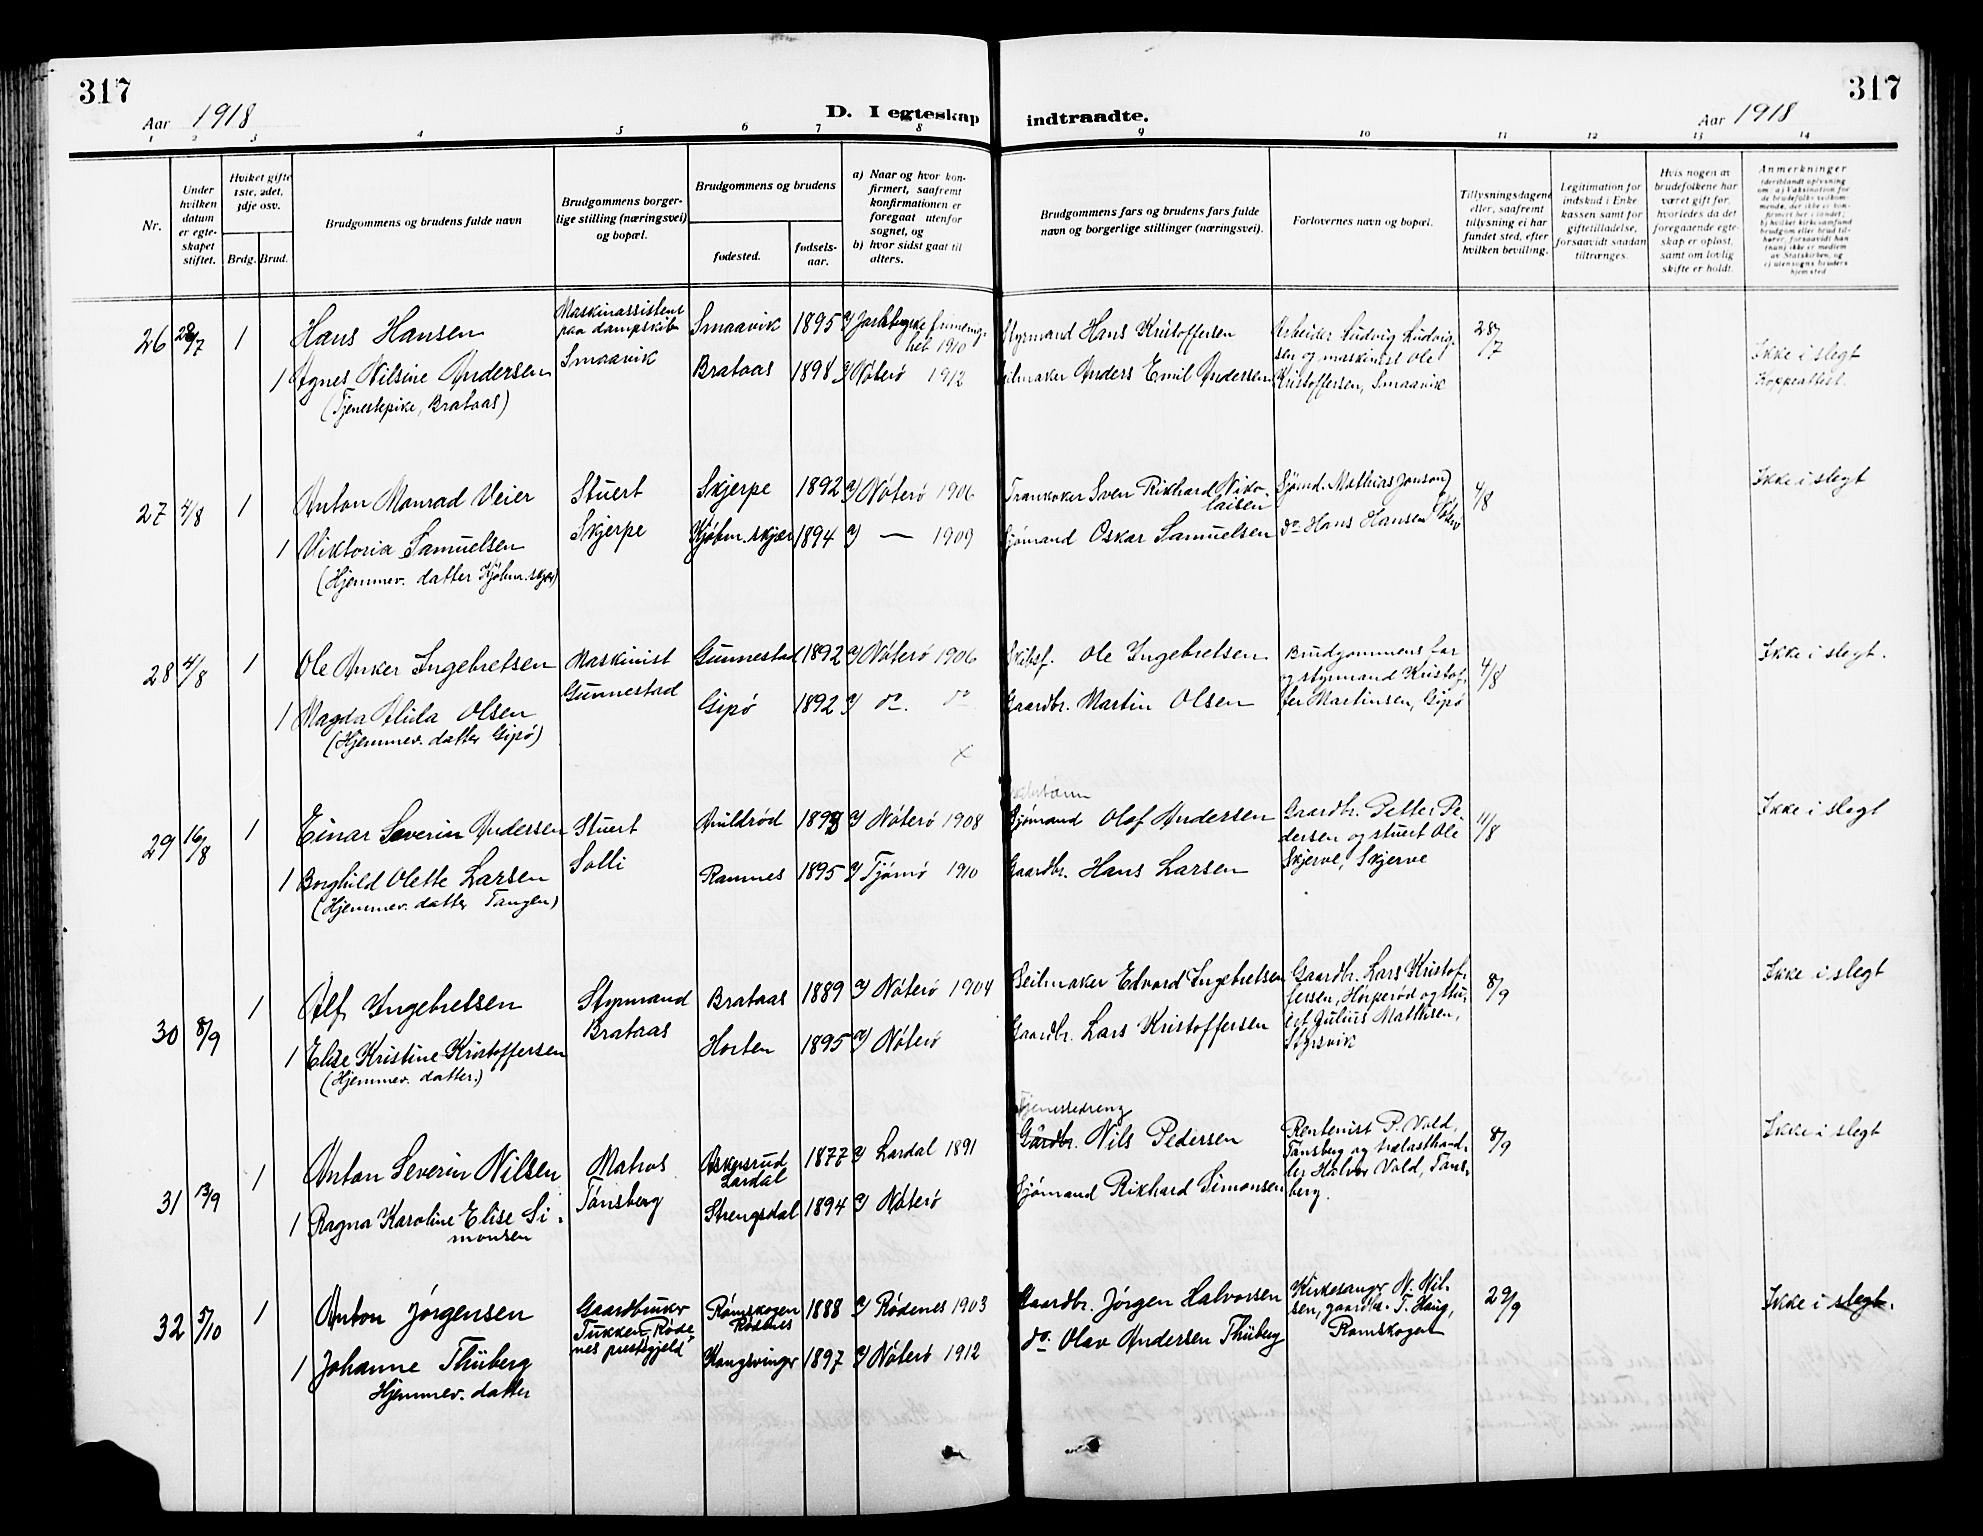 317
317
Aar 1918
D. I egteskap indtraadte.
Aar 1918
1 2 3 4 5 6 7 8 9 10 11 12 13 14
Nr.
Under hvilken datum er egteskapet stiftet.
Hviket gifte 1ste, 2det, 3dje osv.
Brdg. Brud.
Brudgommens og brudens fulde navn
Brudgommens borgerlige stilling (næringsvei) og bopæl.
Brudgommens og brudens
fødested.
fødselsaar.
a) Naar og hvor konfirmert, saafremt konfirmationen er foregaat utenfor sognet, og
b) hvor sidst gaat til alters.
Brudgommens fars og brudens fars fulde navn og borgerlige stillinger (næringsvei).
Forlovernes navn og bopæl.
Tillysningsdagene eller, saafremt tillysning ei har fundet sted, efter hvilken bevilling.
Legitimation for indskud i Enkekassen samt for giftetilladelse, forsaavidt saadan tiltrænges.
Hvis nogen av brudefolkene har været gift før, hvorledes da det foregaaende egteskap er opløst, samt om lovlig skifte er holdt.
Anmerkninger
26 28/7 1 Hans Hansen Maskinassistent paa dampskib Smaavik Smaavik 1895 Styrmand Hans Kristoffersen Arbeider Ludvig Ludvigsen og maskinist Ole Kristoffersen, Smaavik 28/7 Ikke i slegt Koppeattest.
1 Agnes Nilsine Andersen Brataas 1898 Nøterø 1912 Seilmaker Anders Emil Andersen
(Tjenestepike, Brataas)
27 4/8 1 Anton Monrad Veier Stuert Skjerpe Skjerpe 1892 Nøterø 1906 Trankoker Sven Rikhard Nikolaisen Sjømd. Mathias Jonson 4/8 Ikke i slegt
1 Viktoria Samuelsen Kjøbm.skjær 1894 — 1909 Sjømand Oskar Samuelsen do Hans Hansen
(Hjemmev. datter Kjøbm.skjær)
28 4/8 1 Ole Anker Ingebretsen Maskinist Gunnestad Gunnestad 1892 Nøterø 1906 Skibsf. Ole Ingebretsen Brudgommens far og styrmand Kristoffer Martinsen, Gipø 4/8 Ikke i slegt.
1 Magda Alida Olsen Gipø 1892 do. do Gaardbr. Martin Olsen
(Hjemmev. datter Gipø)
29 16/8 1 Einar Severin Andersen Stuert Solli Buldrød 1893 Nøterø 1908 Sjømand Olaf Andersen Gaardbr. Petter Pedersen og stuert Ole Skjerve, Skjerve 11/8 Ikke i slegt
1 Borghild Olette Larsen Ramnes 1895 Tjømø 1910 Gaardbr. Hans Larsen
(Hjemmev. datter Tangen)
30 8/9 1 Alf Ingebretsen Styrmand Brataas Brataas 1889 Nøterø 1904 Seilmaker Edvard Ingebretsen Gaardbr. Lars Kristoffersen, Herperød og stuert Julius Mathisen, 8/9 Ikke i slegt
1 Elise Kristine Kristoffersen Horten 1895 Nøterø Gaardbr. Lars Kristoffersen
(Hjemmev. datter.)
31 13/9 1 Anton Severin Nilsen Matros Tønsberg Lardal 1877 Lardal 1891 Tjenestedreng Gårdbr. Nils Pedersen Rentenist P. Vold, Tønsberg og trælasthandler Halvor Vold, Tønsberg. 8/9 Ikke i slegt
1 Ragna Karoline Elise Simonsen Strengsdal 1894 Nøterø Sjømand Rikhard Simonsen
32 5/10 1 Anton Jørgensen Gaardbruker Tukken, Rødenes prestgjeld Rømskogen Rødenes 1888 Rødenes 1903 Gaardbr. Jørgen Halvorsen Kirkesanger N. Nilsen, gaardbr. T. Haug, Rømskogen 29/9 Ikke i slegt.
1 Johanne Thüberg Kongsvinger 1897 Nøterø 1912 do. Olav Andersen Thüberg
Hjemmev. datter